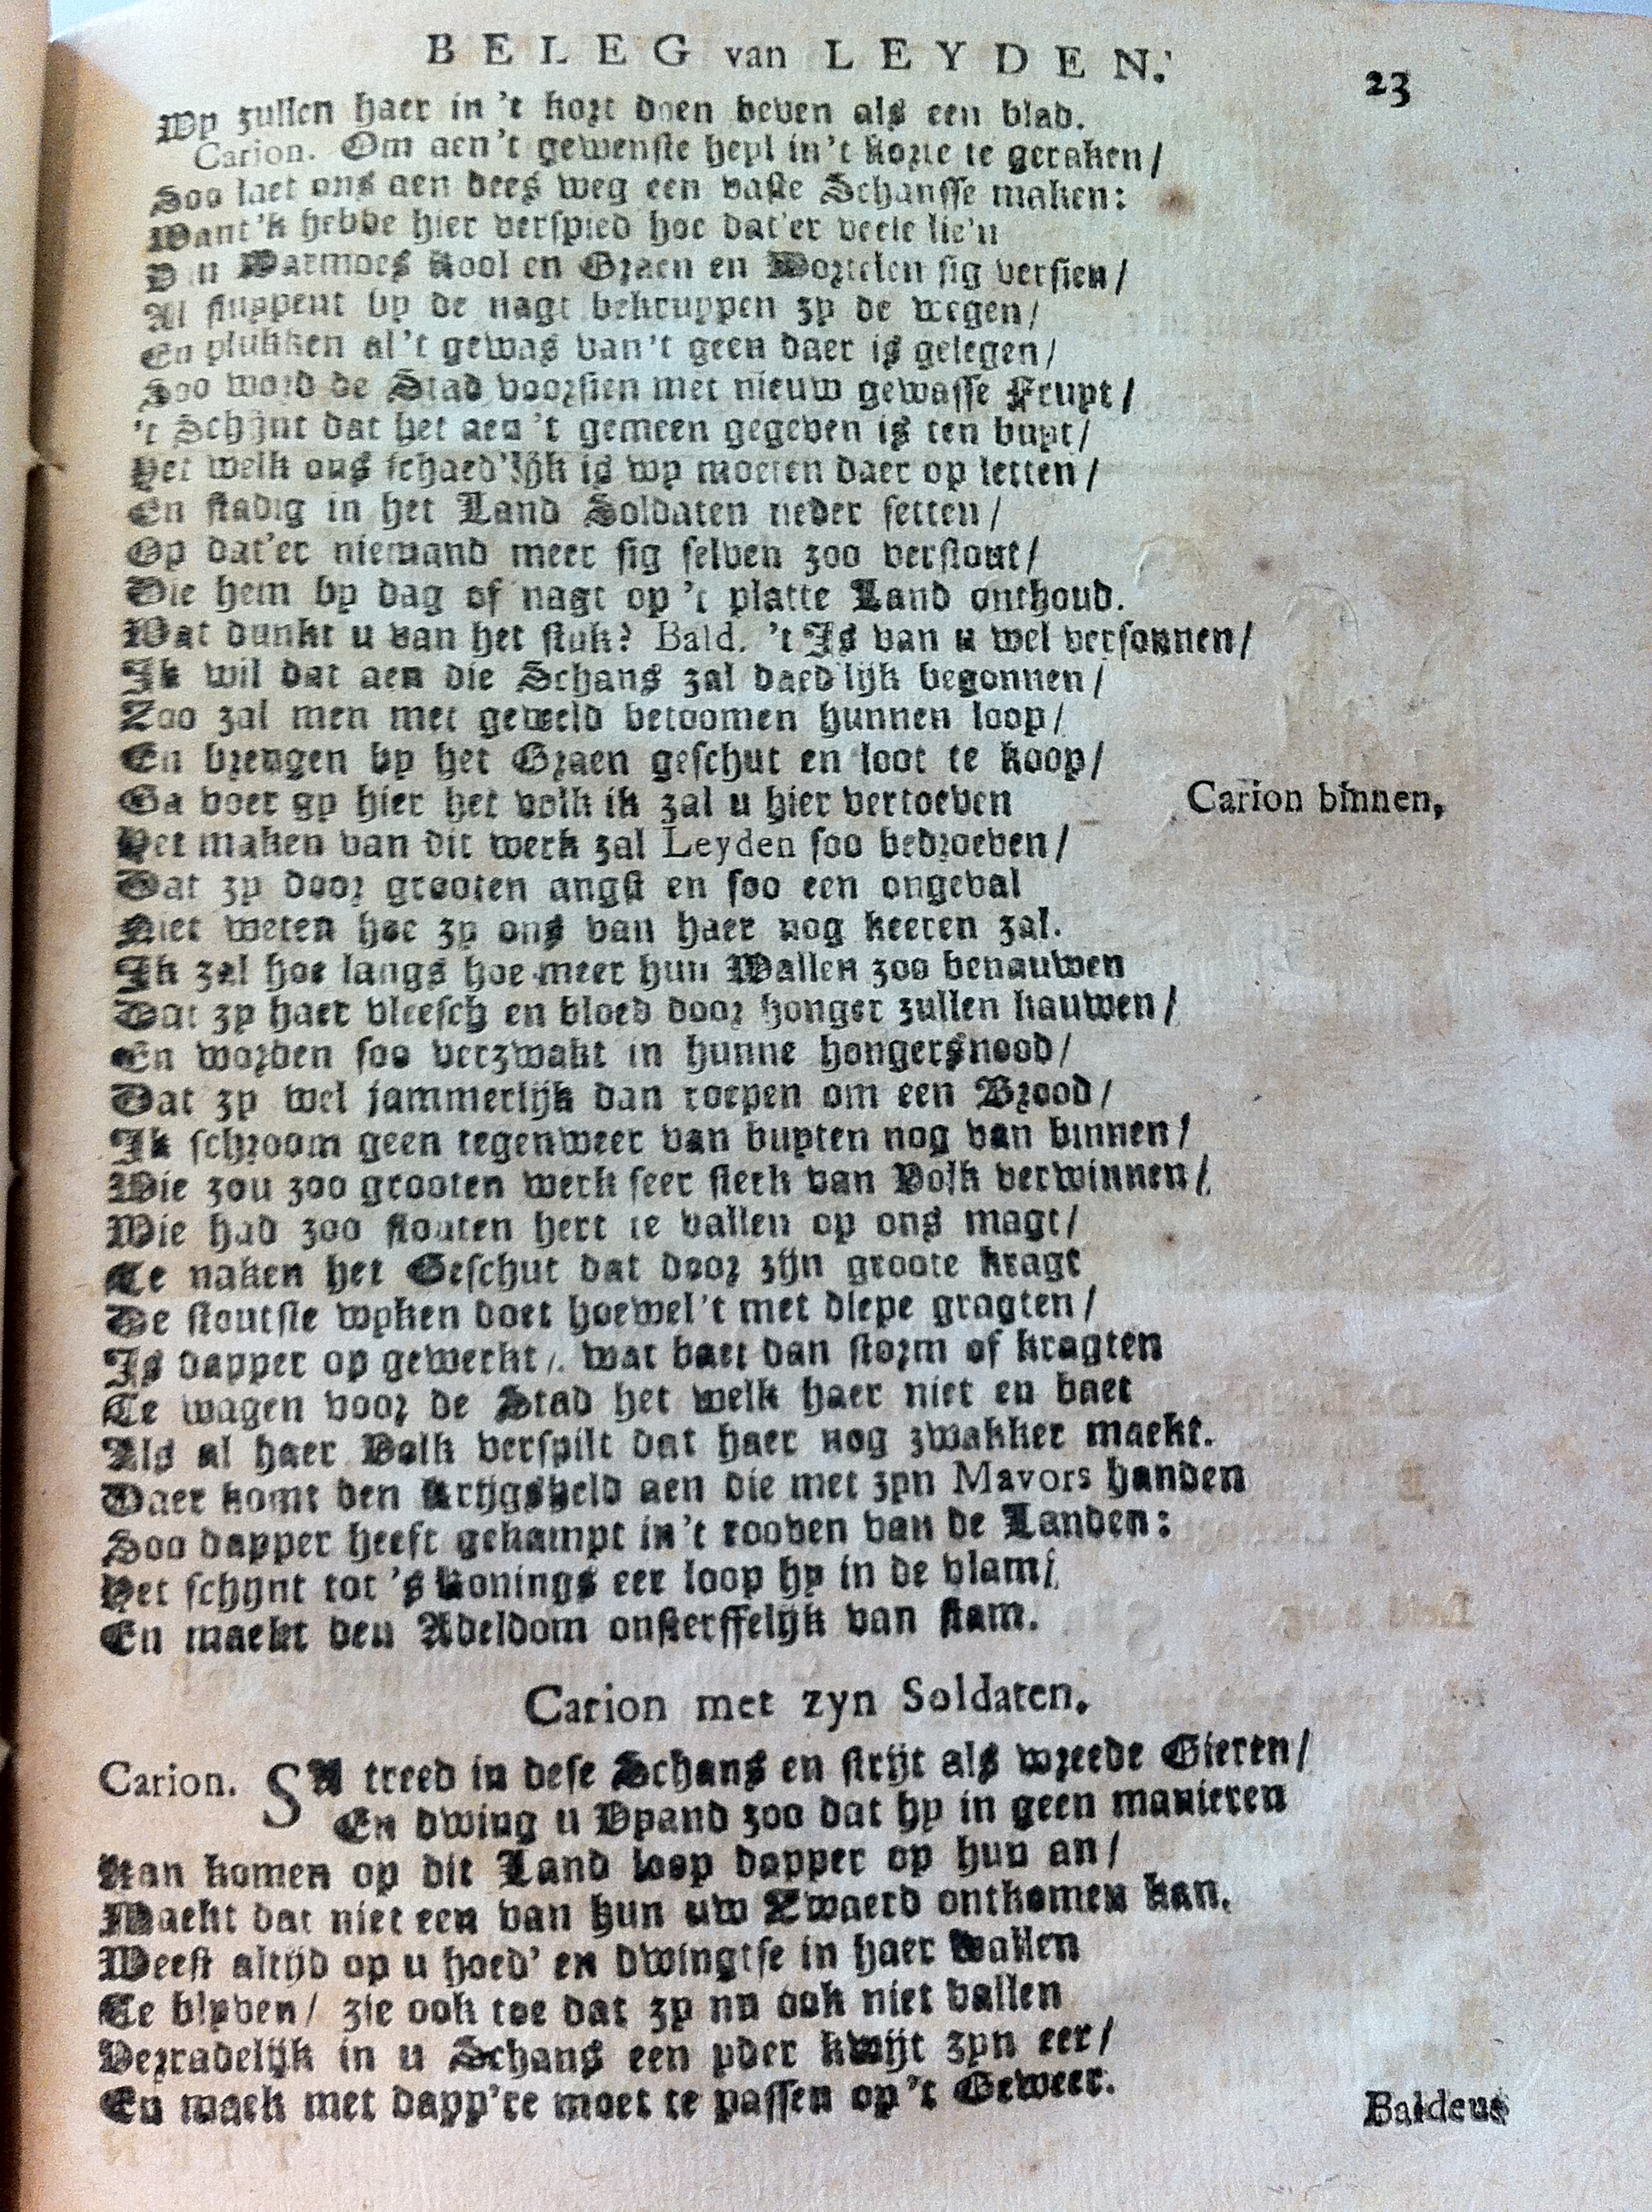 BELEG van LEYDEN.
23
Wy zullen haer in 't kort doen beven als een blad.
Carion. Om aen 't gewenste heyl in 't korte te geraken /
Soo laet ons aen dees weg een vaste Schansse maken:
Want 'k hebbe hier verspied hoe dat'er veele lie'n
Van Warmoes Kool en Graen en Wortelen sig versien /
Al sluypent by de nagt bekruypen zy de wegen /
En plukken al 't gewas van 't geen daer is gelegen /
Soo word de Stad voorsien met nieuw gewasse Fruyt /
't Schijnt dat het aen 't gemeen gegeven is ten buyt /
Het welk ons schaed'lijk is wy moeten daer op letten /
En stadig in het Land Soldaten neder setten /
Op dat'er niemand meer sig selven zoo verstout /
Die hem by dag of nagt op 't platte Land onthoud.
Wat dunkt u van het stuk? Bald. 't Is van u wel versonnen /
Ik wil dat aen die Schans zal daed'lijk begonnen /
Zoo zal men met geweld betoomen hunnen loop /
En brengen by het Graen geschut en loot te koop /
Ga voer gy hier het volk ik zal u hier vertoeven
Carion binnen,
Het maken van dit werk zal Leyden soo bedroeven /
Dat zy door grooten angst en soo een ongeval
Niet weten hoe zy ons van haer nog keeren zal.
Ik zal hoe langs hoe meer hun Wallen zoo benauwen
Dat zy haer vleesch en bloed door honger zullen kauwen /
En worden soo verzwakt in hunne hongersnood /
Dat zy wel jammerlijk dan roepen om een Brood /
Ik schroom geen tegenweer van buyten nog van binnen /
Wie zou zoo grooten werk seer sterk van Volk verwinnen /
Wie had zoo stouten hert te vallen op ons magt /
Te naken het Geschut dat door zijn groote kragt
De stoutste wyken doet hoewel 't met diepe gragten /
Is dapper op gewerkt /. wat baet dan storm of kragten
Te wagen voor de Stad het welk haer niet en baet
Als al haer Volk verspilt dat haer nog zwakker maekt.
Daer komt den Krijgsheld aen die met zyn Mavors handen
Soo dapper heeft gekampt in 't rooven van de Landen:
Het schynt tot 's Konings eer loop hy in de vlam /
En maekt den Adeldom onsterffelijk van stam.
Carion met zyn Soldaten.
Carion. SA treed in dese Schans en strijt als wreede Gieren /
En dwing u Vyand zoo dat hy in geen manieren
Kan komen op dit Land loop dapper op hun an /
Maekt dat niet een van hun uw Zwaerd ontkomen kan.
Weest altijd op u hoed' en dwingtse in haer wallen
Te blyven / zie ook toe dat zy nu ook niet vallen
Verradelijk in u Schans een yder kwijt zyn eer /
En maek met dapp're moet te passen op 't Geweer.
Baldeus